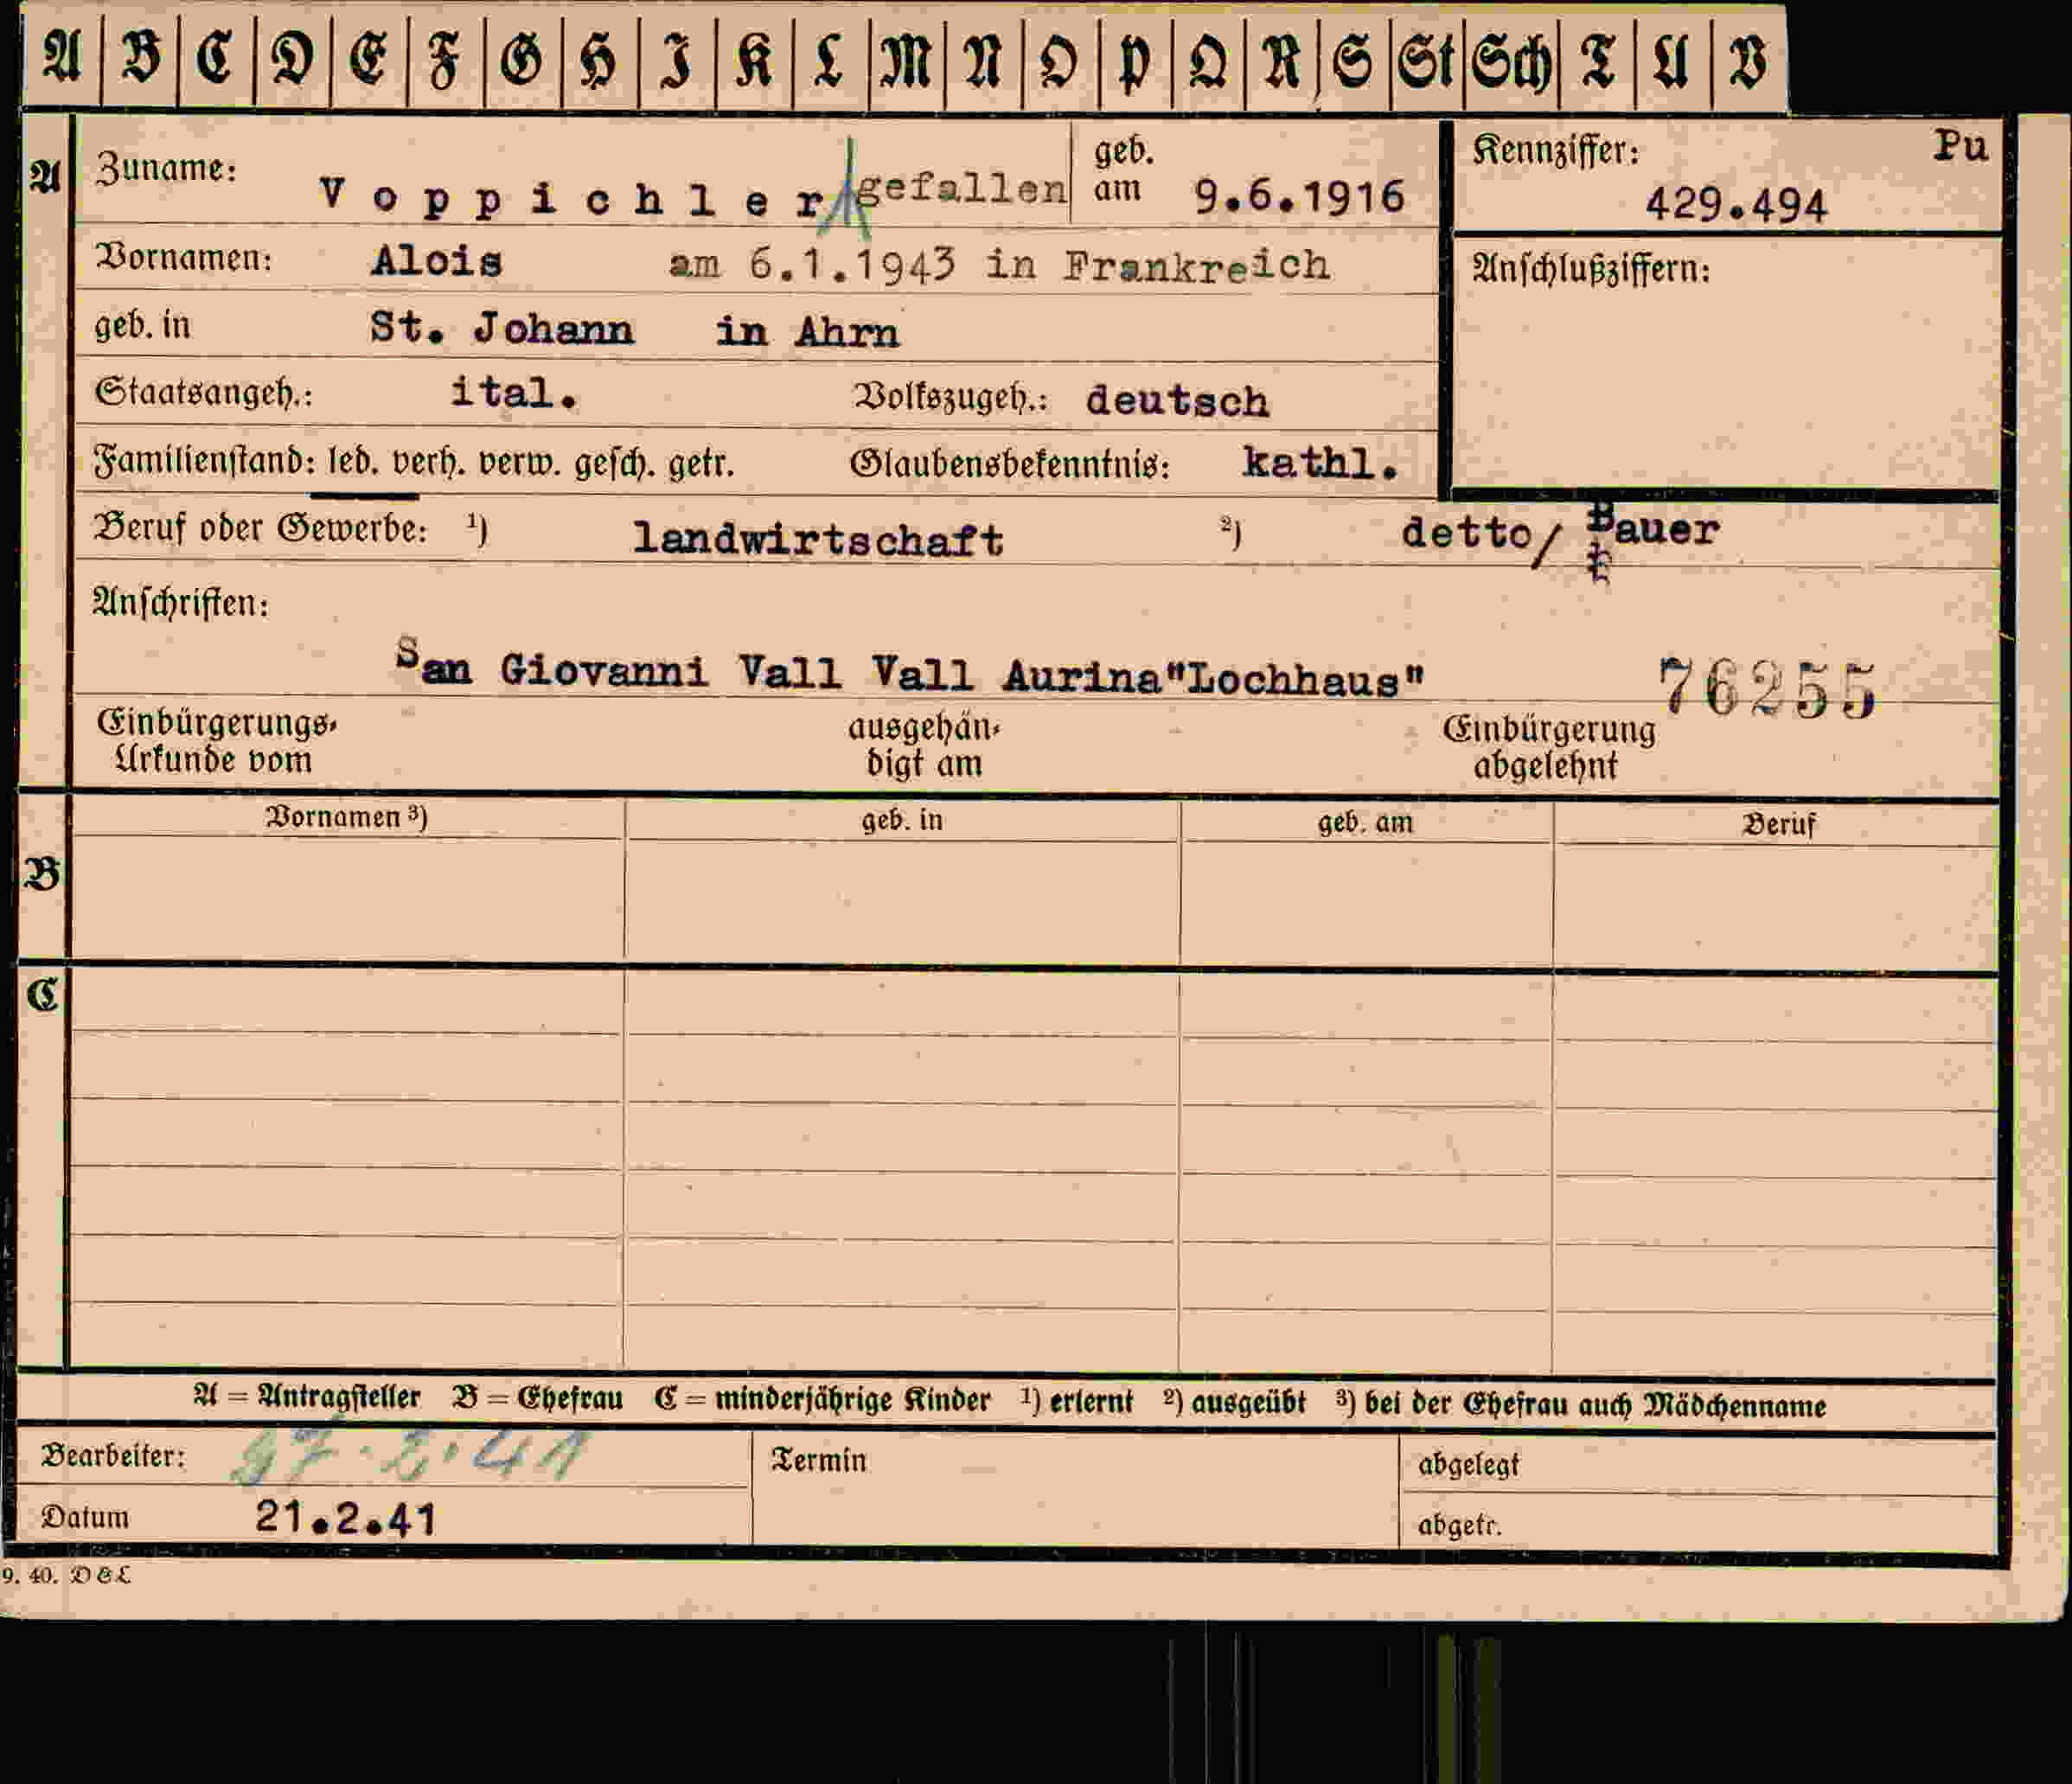 A B C D E F G H I K L M N O P Q R S St Sch T U V
A Zuname: Voppichler gefallen geb. am 9.6.1916 Kennziffer: Pu
429.494
Vornamen: Alois am 6.1.1943 in Frankreich Anschlußziffern:
geb. in St. Johann in Ahrn
Staatsangeh.: ital. Volkszugeh.: deutsch
Familienstand: led. verh. verw. gesch. getr. Glaubensbekenntnis: kathl.
Beruf oder Gewerbe: 1) landwirtschaft 2) detto/ Bauer
Anschriften:
San Giovanni Vall Vall Aurina"Lochhaus" 76255
Einbürgerungs- ausgehän- Einbürgerung
Urkunde vom digt am abgelehnt
Vornamen 3) geb. in geb. am Beruf
B
C
A = Antragsteller B = Ehefrau C = minderjährige Kinder 1) erlernt 2) ausgeübt 3) bei der Ehefrau auch Mädchenname
Bearbeiter: Termin abgelegt
Datum 21.2.41 abgetr.
9. 40. D & L